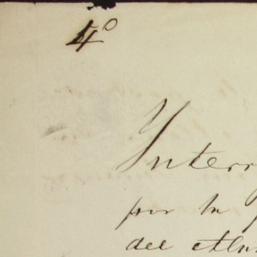 4º
Interr
por la p
del Alu